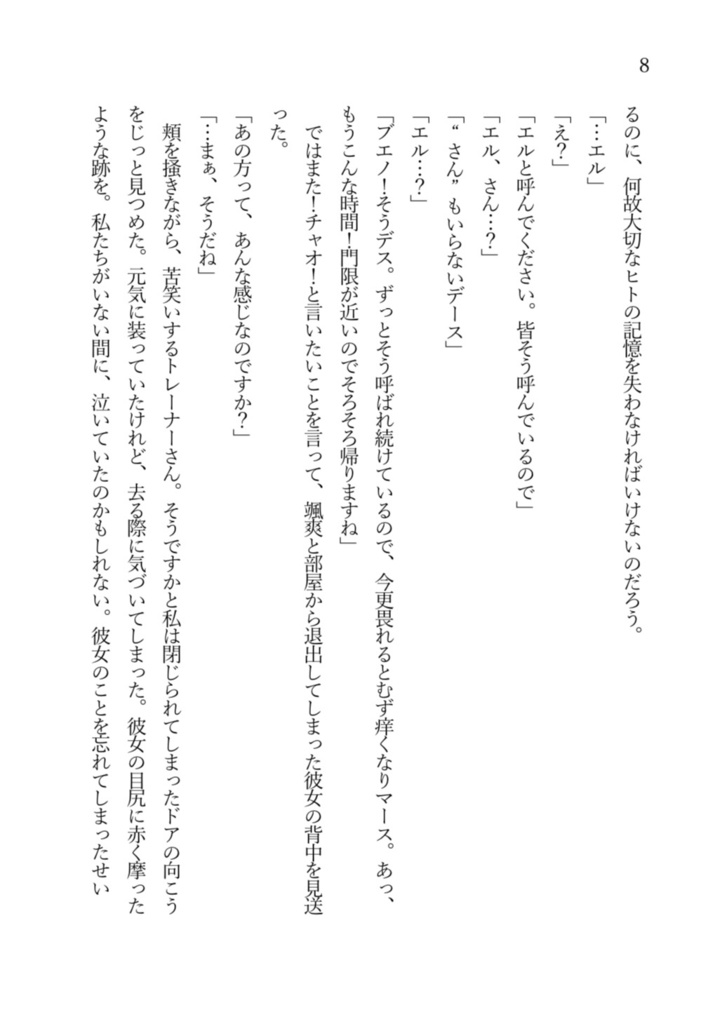 8
るのに、何故大切なヒトの記憶を失わなければいけないのだろう。
「…エル」
「え？」
「エルと呼んでください。皆そう呼んでいるので」
「エル、さん…？」
「“さん”もいらないデース」
「エル…？」
「ブエノ！そうデス。ずっとそう呼ばれ続けているので、今更畏れるとむず痒くなりマース。あっ、
もうこんな時間！門限が近いのでそろそろ帰りますね」
ではまた！チャオ！と言いたいことを言って、颯爽と部屋から退出してしまった彼女の背中を見送
った。
「あの方って、あんな感じなのですか？」
「…まぁ、そうだね」
頬を掻きながら、苦笑いするトレーナーさん。そうですかと私は閉じられてしまったドアの向こう
をじっと見つめた。元気に装っていたけれど、去る際に気づいてしまった。彼女の目尻に赤く摩った
ような跡を。私たちがいない間に、泣いていたのかもしれない。彼女のことを忘れてしまったせい